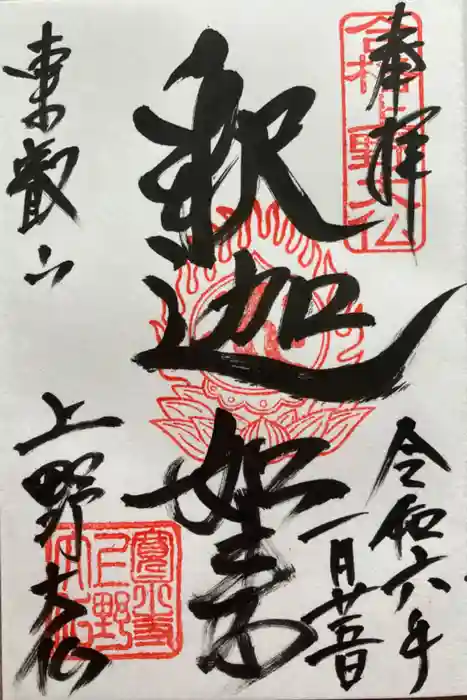 奉拝
令和六年
一月廿五日
釈迦如来
東叡山
上野大仏
合格上野大仏
寛永寺上野大仏